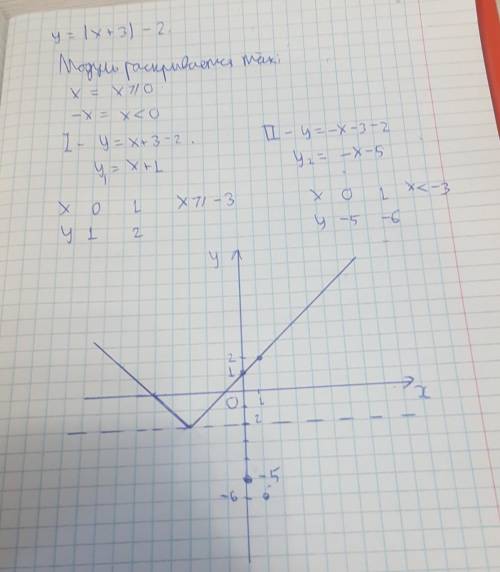 y = |x+3| - 2.
Модуль раскрывается так:
x = x ⩾ 0
-x = x < 0
I - y = x+3-2. II - y = -x-3-2
y₁ = x+1 y₂ = -x-5
x 0 1 x ⩾ -3 x 0 1 x < -3
y 1 2 y -5 -6
y
2
1
0 1 x
2
-5
-6 6